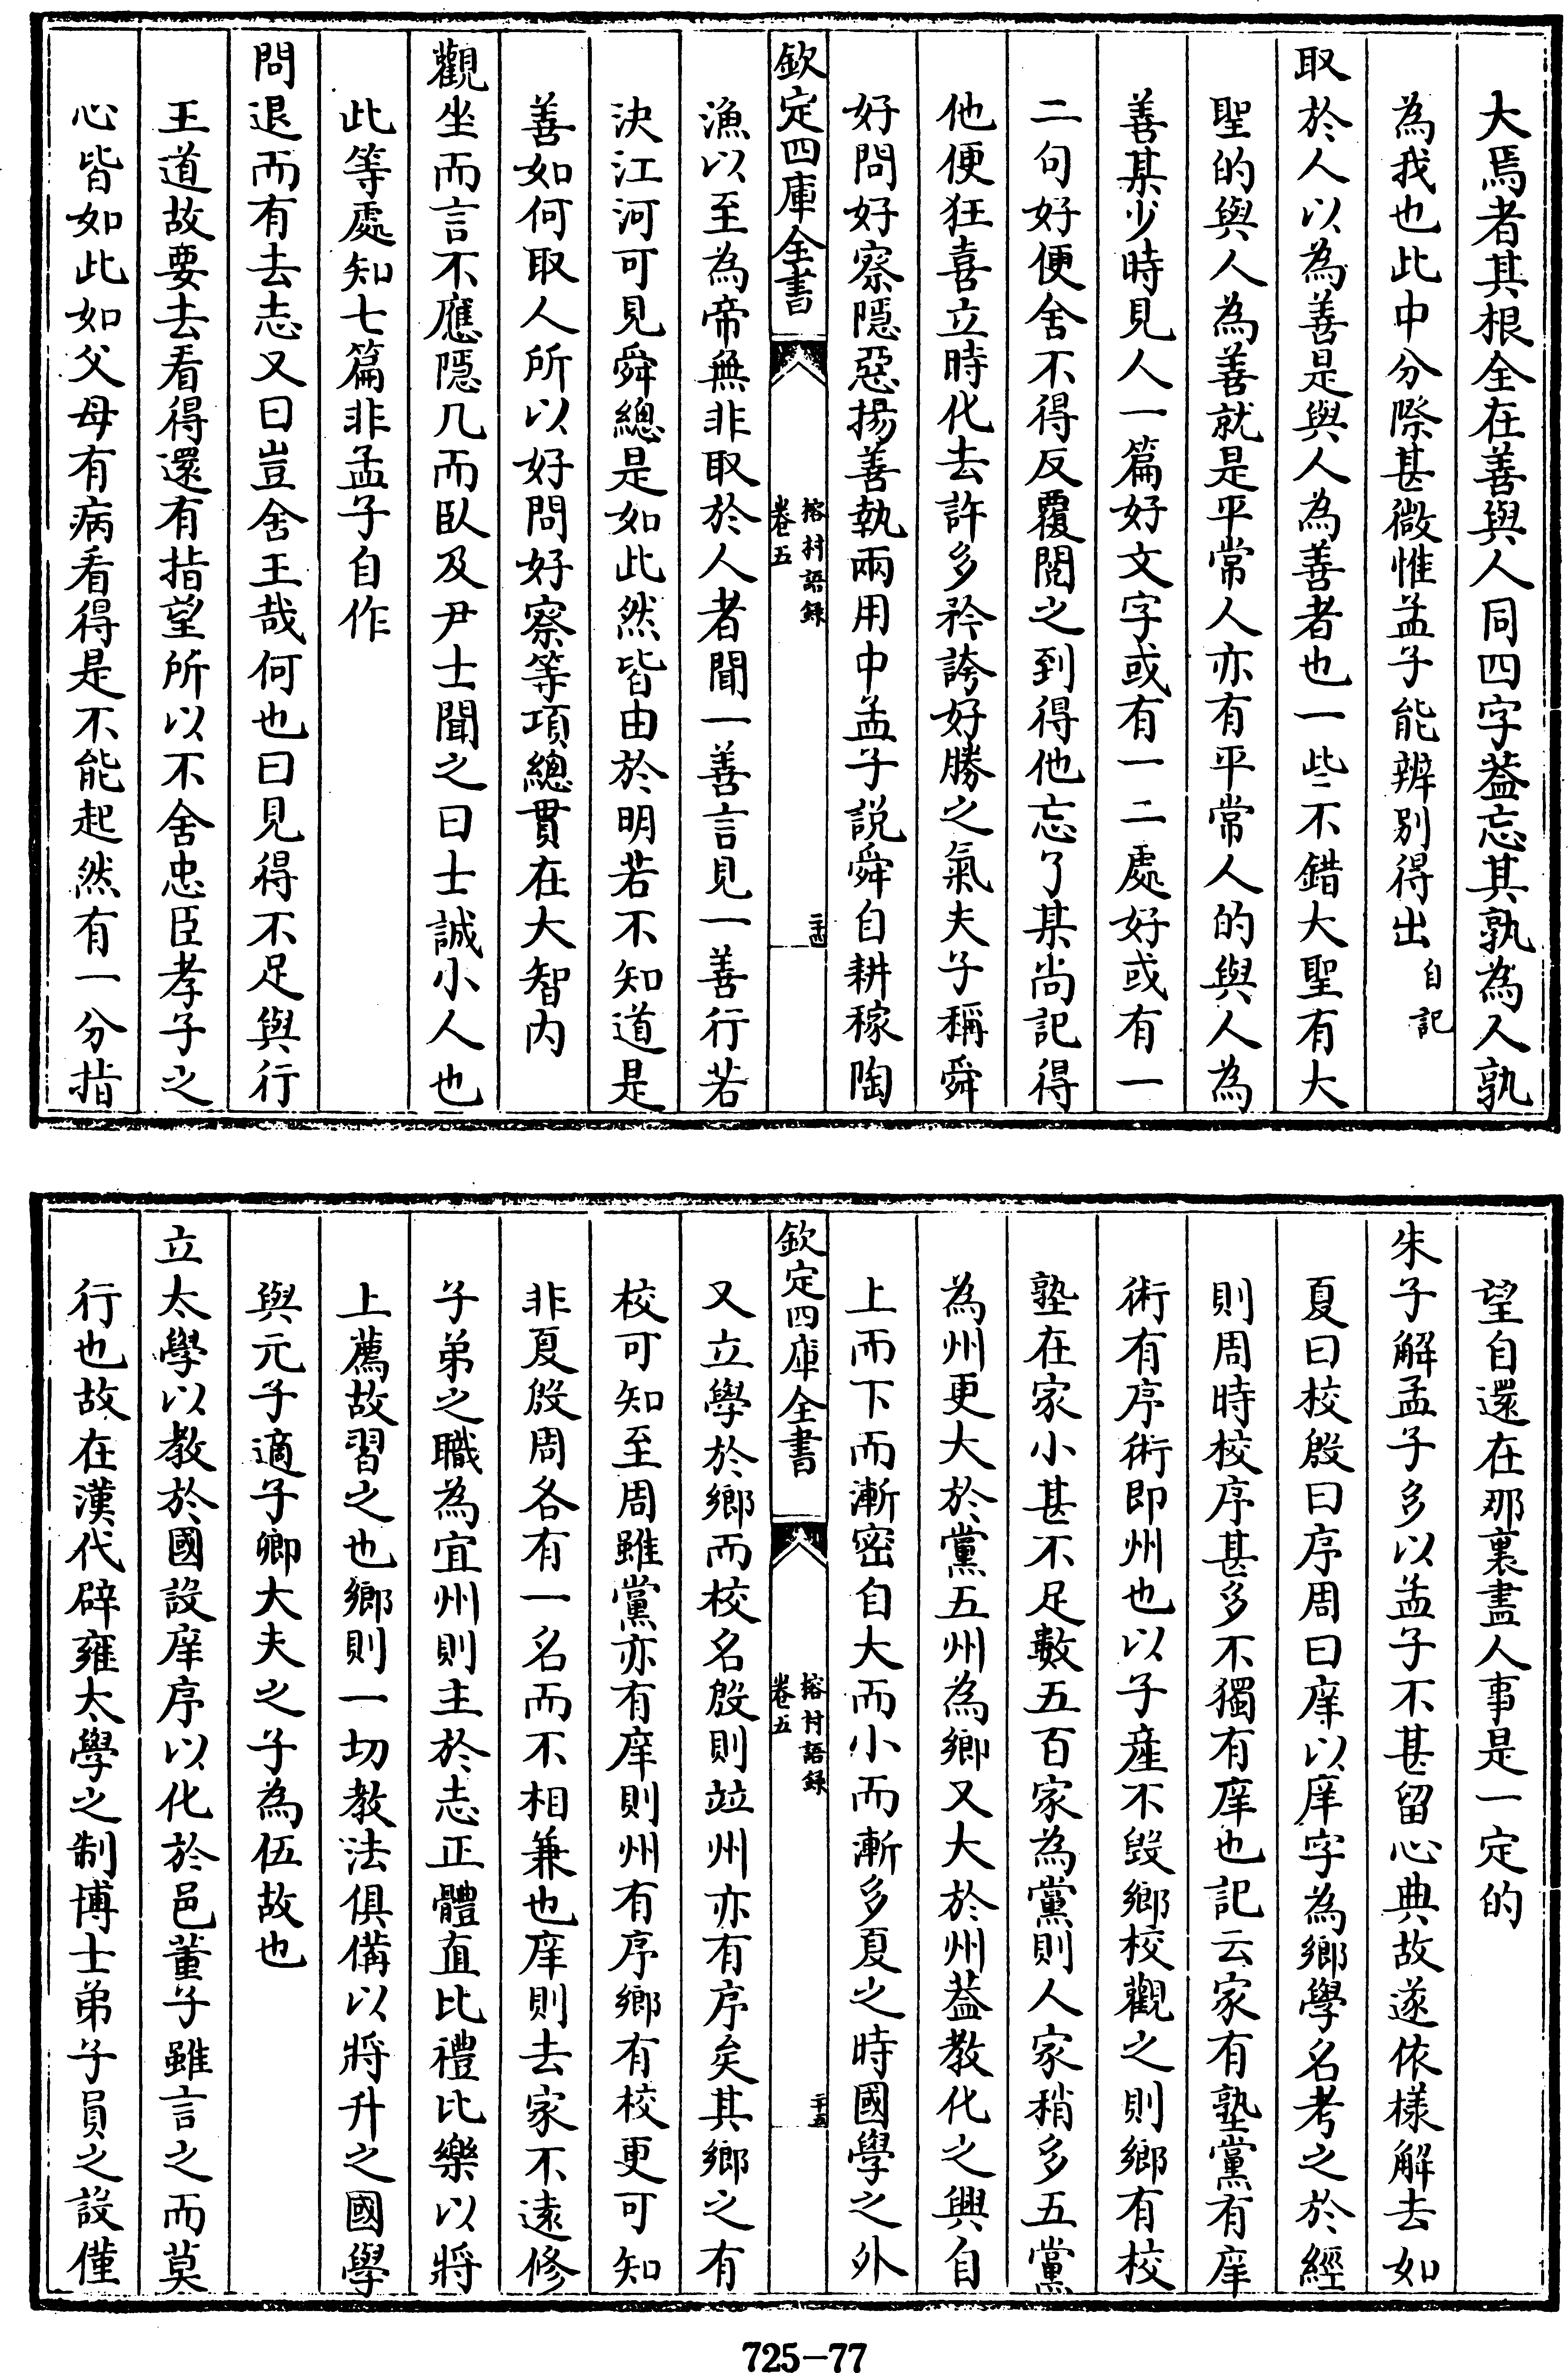 大焉者其根全在善與人同四字葢忘其孰為人孰
為我也此中分際甚微惟孟子能辨別得出自記
取於人以為善是與人為善者也一些不錯大聖有大
聖的與人為善就是平常人亦有平常人的與人為
善某少時見人一篇好文字或有一二處好或有一
二句好便舍不得反覆閱之到得他忘了某尚記得
他便狂喜立時化去許多矜誇好勝之氣夫子稱舜
好問好察隱惡揚善執兩用中孟子說舜自耕稼陶
欽定四庫全書
榕村語錄
卷五
二十四
漁以至為帝無非取於人者聞一善言見一善行若
決江河可見舜總是如此然皆由於明若不知道是
善如何取人所以好問好察等項總貫在大智内
觀坐而言不應隱几而臥及尹士聞之曰士誠小人也
此等處知七篇非孟子自作
問退而有去志又曰豈舍王哉何也曰見得不足與行
王道故要去看得還有指望所以不舍忠臣孝子之
心皆如此如父母有病看得是不能起然有一分指
望自還在那裏盡人事是一定的
朱子解孟子多以孟子不甚留心典故遂依樣解去如
夏曰校殷曰序周曰庠以庠字為鄉學名考之於經
則周時校序甚多不獨有庠也記云家有塾黨有庠
術有序術即州也以子產不毀鄉校觀之則鄉有校
塾在家小甚不足數五百家為黨則人家稍多五黨
為州更大於黨五州為鄉又大於州葢教化之興自
上而下而漸密自大而小而漸多夏之時國學之外
欽定四庫全書
榕村語錄
卷五
二十五
又立學於鄉而校名殷則竝州亦有序矣其鄉之有
校可知至周雖黨亦有庠則州有序鄉有校更可知
非夏殷周各有一名而不相兼也庠則去家不遠修
子弟之職為宜州則主於志正體直比禮比樂以將
上薦故習之也鄉則一切教法俱備以將升之國學
與元子適子卿大夫之子為伍故也
立太學以教於國設庠序以化於邑董子雖言之而莫
行也故在漢代辟雍太學之制博士弟子員之設僅
725-77